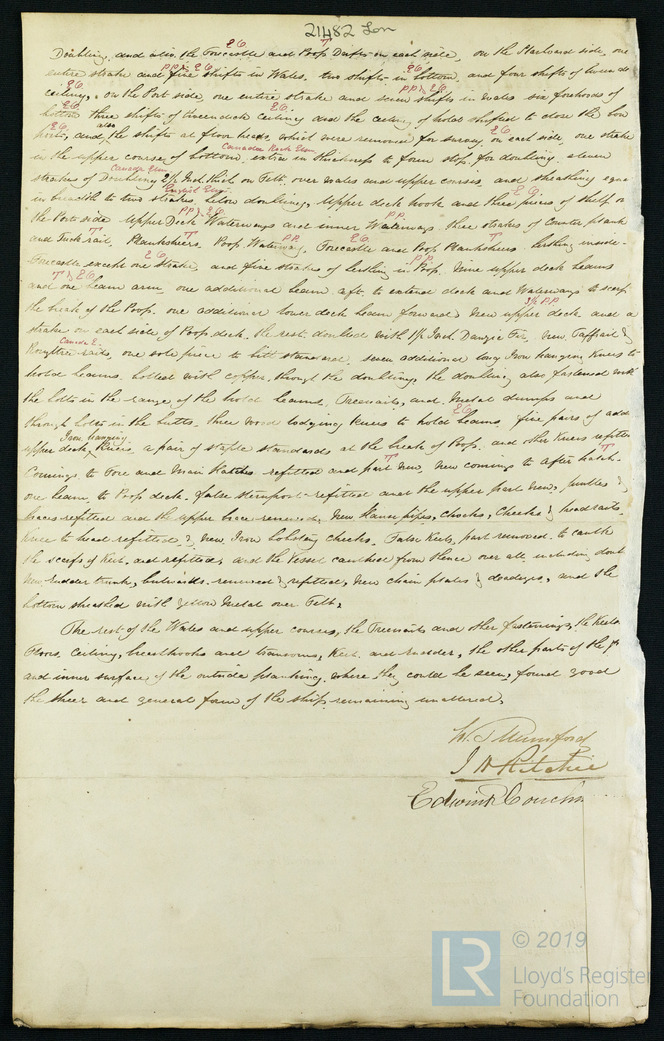 21482 Lon
E.O. T
Doubling, and also the Forecastle and Poop Drifts on each side, on the Starboard side, one
P.P. & E.O. E.O.
entire strake and five shifts in Wales, two shifts in bottom, and four shifts of tween decks
E.O. P.P. & E.O.
ceiling, on the Port side, one entire strake and seven shifts in wales six foreheads of
E.O. E.O.
bottom three shifts of tween deck ceiling and the ceiling of holds shifted to close the bow
E.O. also E.O.
ports, and the shifts at floor heads, which were removed for survey, on each side, one strake
Canadian Rock Elm
in the upper course of bottom extra in thickness to form stop, for doubling, eleven
Canada Elm
strakes of Doubling 2½ Inch thick on Felt over wales and upper course, and sheathing equal
English Elm E.O.
in breadth to two strakes, below doubling, Upper deck hook and three pieces of shelf on
P.P. & E.O. P.P.
the Port side Upper Deck Waterways and inner Waterways, three strakes of Counter plank
T T P.P. E.O. T
and Tuck rail, Planksheers, Poop Waterway, Forecastle and Poop Planksheers birthing inside
E.O. P.P.
Forecastle except one Strake, and five strakes of birthing in Poop, Nine upper deck beams
T & E.O.
and one beam arm, one additional beam aft to extend deck and Waterways to scarp
3½ P.P.
the break of the Poop, one additional lower deck beam forward New upper deck and a
strake on each side of Poop deck, the rest doubled with 1½ Inch Danzic Fir, new Taffrail &
Canada E.
Roughtree rails, one sole piece to bitt standard, seven additional long Iron hanging Knees to
hold beams, bolted with copper, through the doubling, the doubling also fastened with
the bolts in the range of the hold beams, Treenails, and metal dumps and
E.O.
through bolts in the butts, three wood lodging knees to hold beams, five pairs of addl
Iron hanging
upper deck Knees, a pair of staple standards at the break of Poop, and other Knees refitted
T T
Comings to Fore and Main Hatches refitted and part new, new comings to after hatch
one beam, to Poop deck, false sternpost refitted and the upper part new, pintles &
braces refitted and the upper brace renewed, New Hawse pipes, chocks, cheeks & headrails
knee to head refitted & new Iron bobstay cheeks. False Keels, part removed to caulk
the scarfs of Keel, and refitted, and the Vessel caulked from thence over all including doubl
New rudder trunk, bulwarks removed & refitted, New chain plates & deadeyes, and the
bottom sheathed with Yellow Metal over Felt,
The rest of the Wales and upper courses, the Treenails and other fastenings, the Keelsons
Floors, Ceiling, breasthooks and transoms, Keel and rudder, the other parts of the
and inner surface of the outside planking, where they could be seen, found good
the sheer and general form of the ship remaining unaltered,
W. J Mumford
J H Ritchie
Edwin
LR
© 2019
Lloyd's Register
Foundation